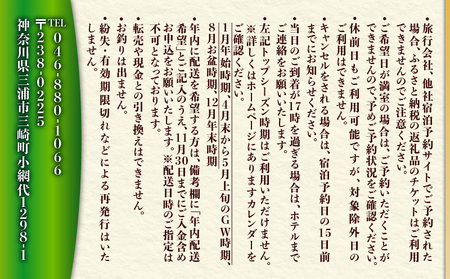 ・旅行会社、他社宿泊予約サイトでご予約された
場合、ふるさと納税の返礼品のチケットはご利用
できませんのでご注意ください。
・ご希望日が満室の場合は、ご予約いただくことが
できませんので、予めご予約状況をご確認ください。
・休前日もご利用可能ですが、対象除外日の
ご利用はできません。
・キャンセルをされる場合は、宿泊予約日の15日前
までにお知らせください。
・当日のご到着が17時を過ぎる場合は、ホテルまで
ご連絡をお願いします。
・左記トップシーズン時期はご利用いただけません。
※詳しくはホームページにありますカレンダーを
ご確認ください。
1月年始時期、4月末から5月上旬のGW時期、
8月お盆時期、12月年末時期
・年内に配送を希望する方は、備考欄に「年内配送
希望」とご記入のうえ、11月30日までにご入金含め
お申込をお願いいたします。※配送日時のご指定は
不可となっております。
・転売や現金との引き換えはできません。
・お釣りは出ません。
・紛失、有効期限切れなどによる再発行はいた
しません。
TEL 046-880-1066
〒238-0225
神奈川県三浦市三崎町小網代1298-1